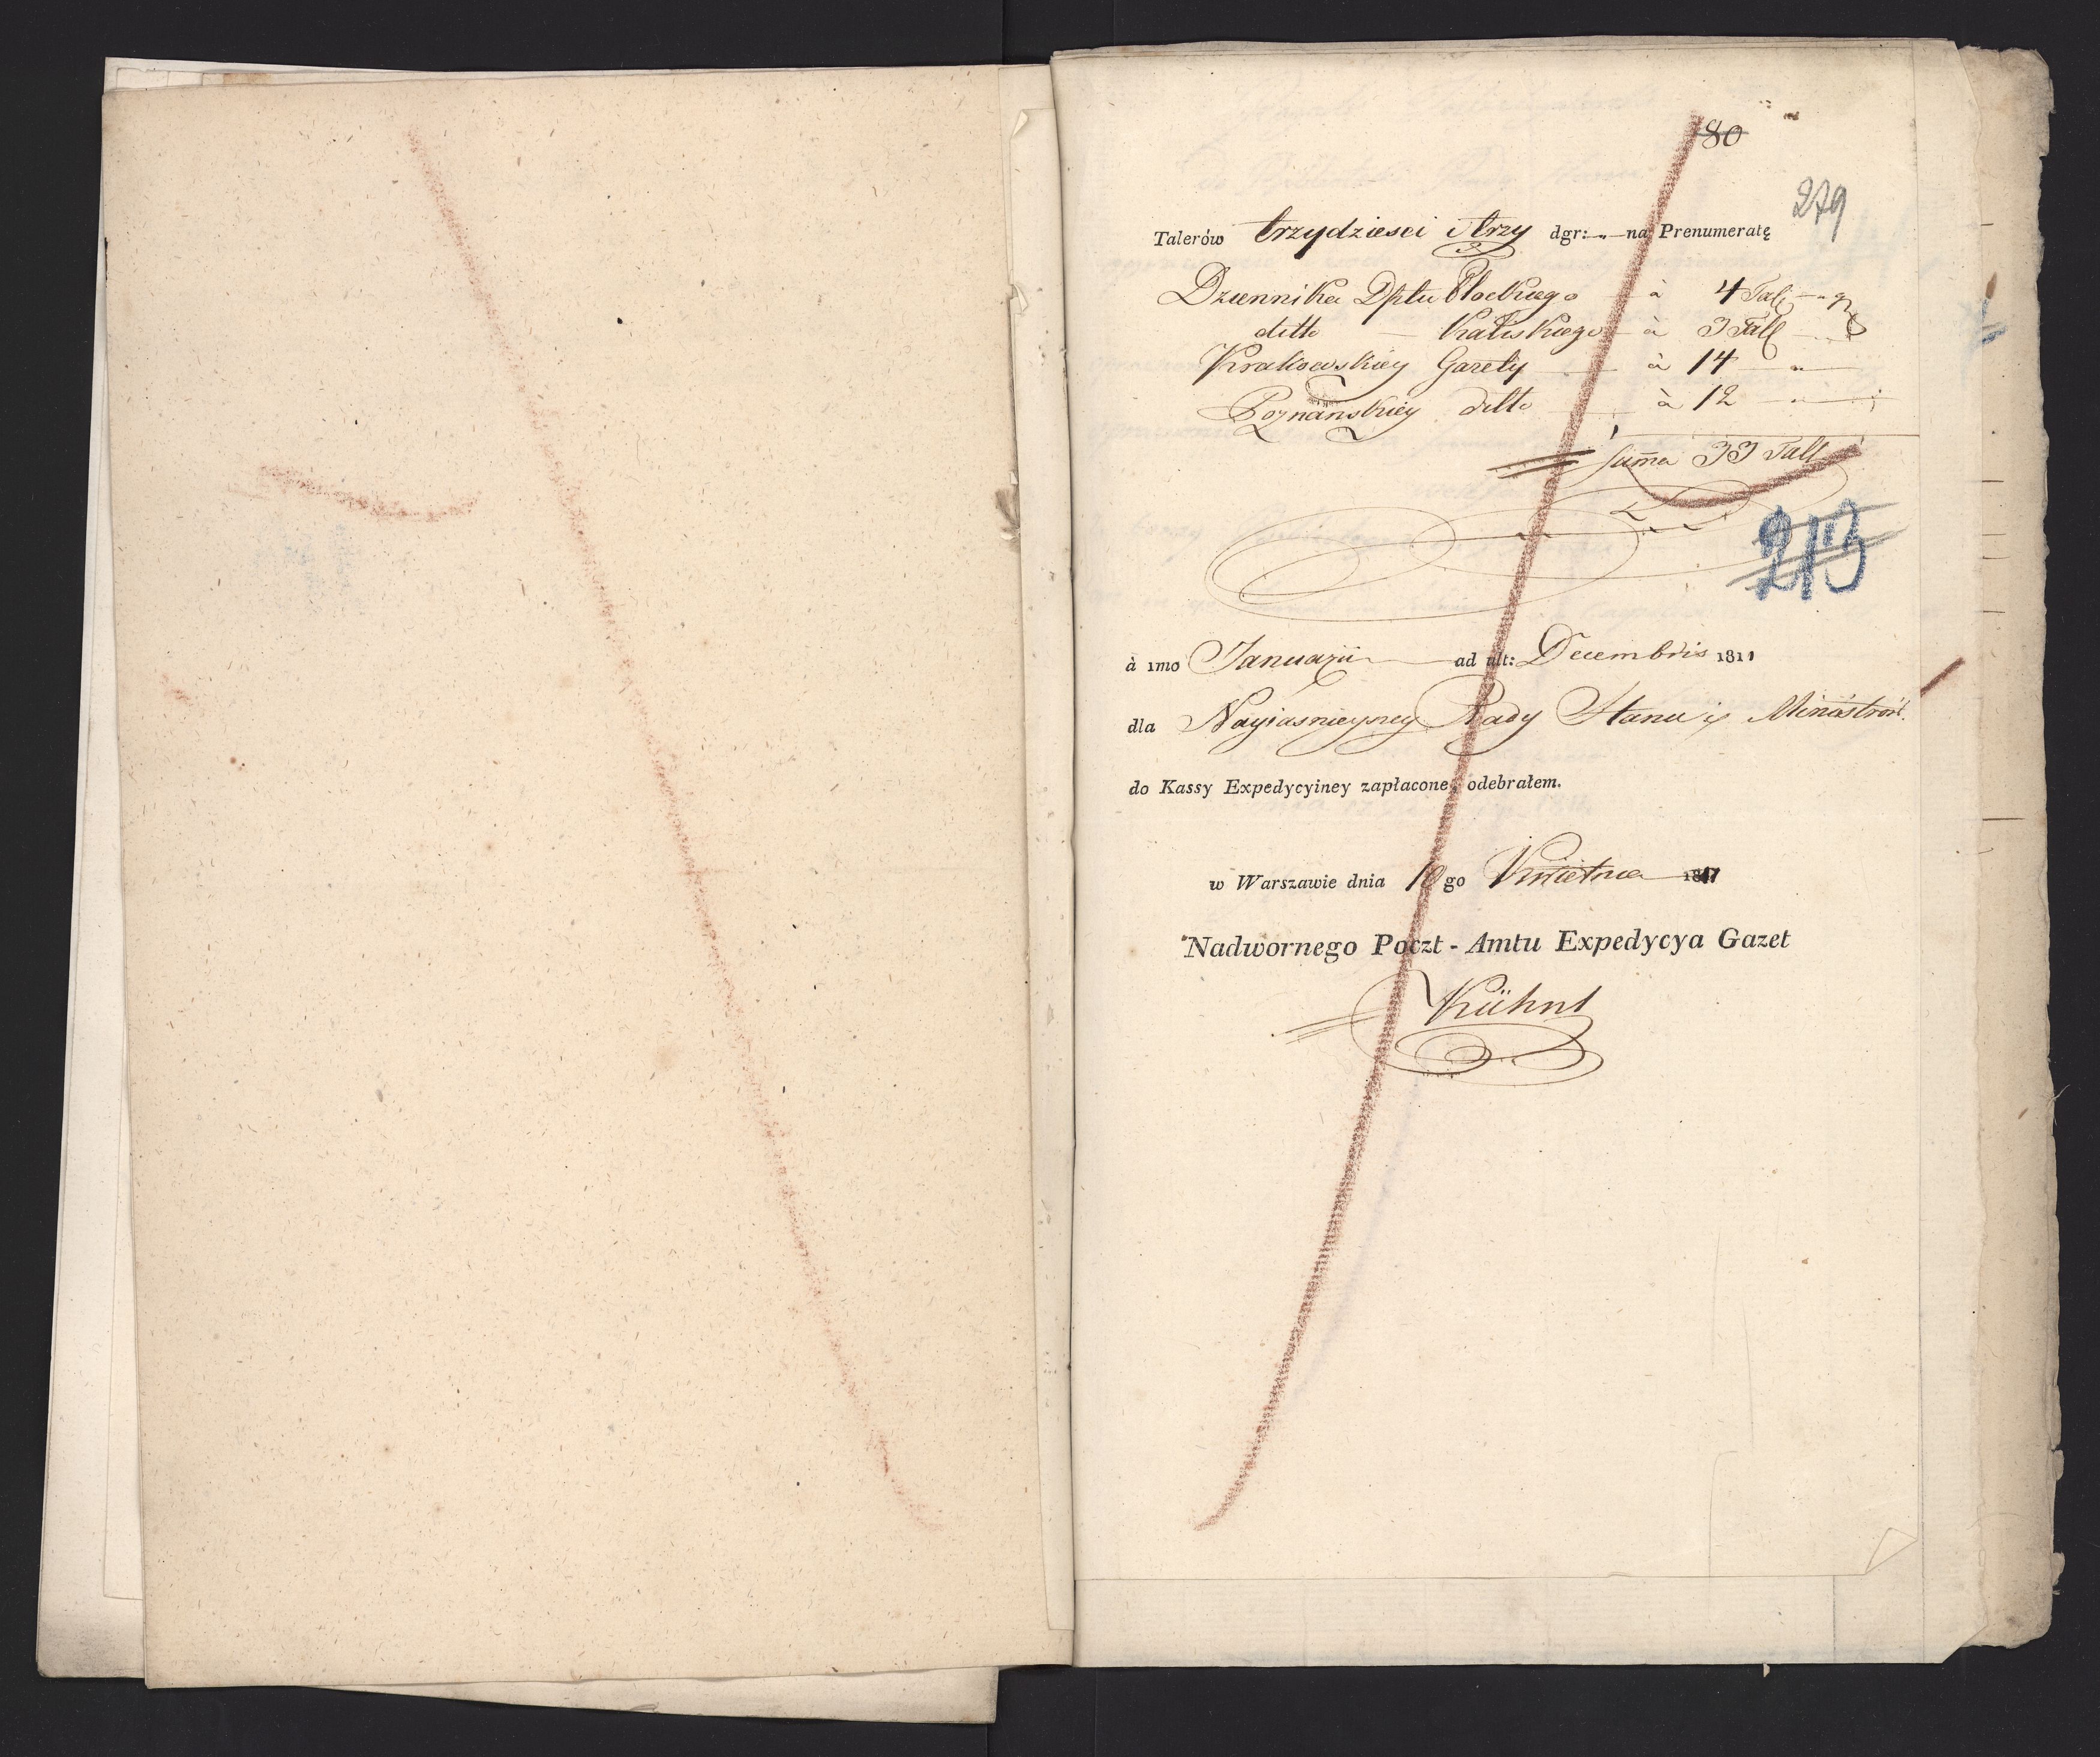 80
279
Talerów trzydziesci trzy dgr: „ na Prenumeratę
Dziennika Dptu Płockiego à 4 Tall
detto Kaliskiego à 3 Tall
Krakowskiey Gazety à 14 „
Poznanskiey detto à 12 „
Suma 33 Tall
213
à 1mo Januarii ad ult: Decembris 1811
dla Nayiasnieyszey Rady Stanu i Ministrów
do Kassy Expedycyiney zapłacone, odebrałem.
w Warszawie dnia 10 go Kwietnia 1811
Nadwornego Poczt - Amtu Expedycya Gazet
Kühnl